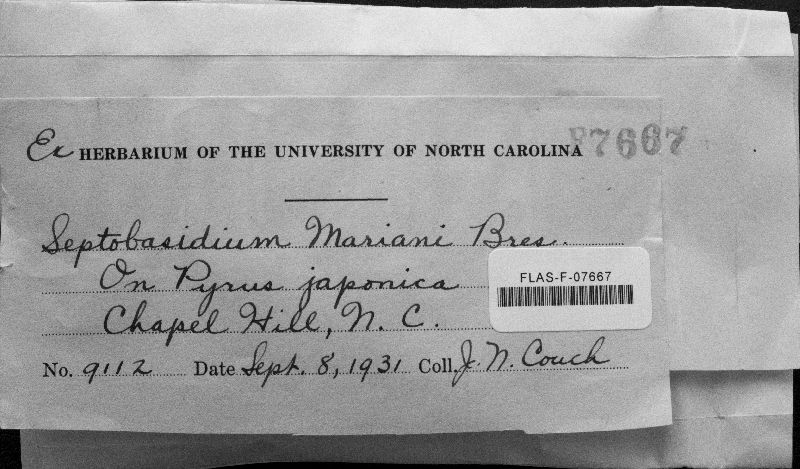 Ex HERBARIUM OF THE UNIVERSITY OF NORTH CAROLINA
F7667
Septobasidium Mariani Bres.
On Pyrus japonica
FLAS-F-07667
Chapel Hill, N. C.
No. 9112 Date Sept. 8, 1931 Coll. J. N. Couch